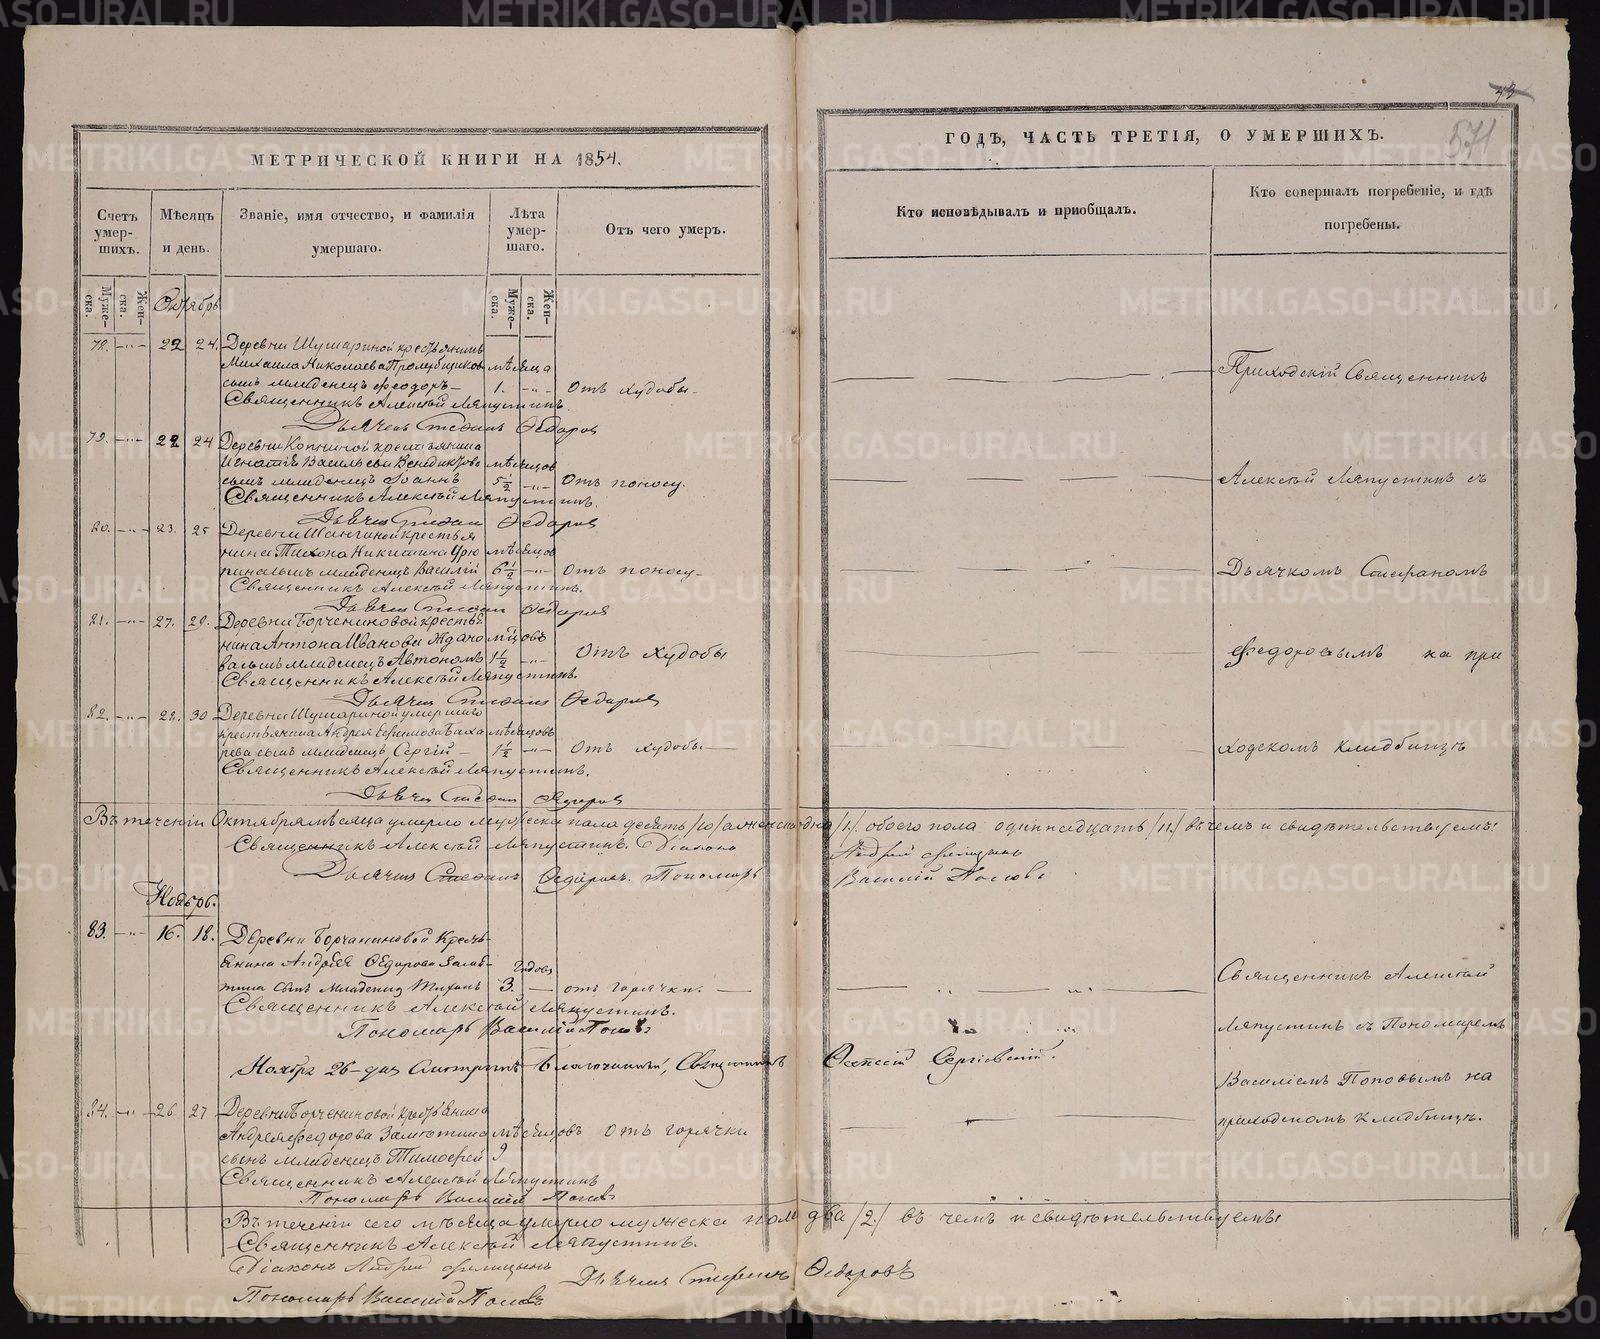 МЕТРИЧЕСКОЙ КНИГИ НА 1854.
Счетъ умер-шихъ.
Мѣсяцъ и день.
Званіе, имя отчество, и фамилія умершаго.
Лѣта умер-шаго.
Отъ чего умеръ.
Муже-ска.
Жен-ска.
Муже-ска.
Жен-ска.
Октябрь
78. 22 24. Деревни Шушариной крестьянина
Михаила Николаева мѣсяца
сынъ младенецъ Феодоръ 1. Отъ худобы
Священникъ Алексѣй Ляпустинъ.
Дьячекъ Стефанъ Ѳедоровъ
79. 22 24 Деревни Копниной крестьянина
Игнатія Васильева мѣсяцов
сынъ младенецъ Іоаннъ 5½ Отъ поносу.
Священникъ Алексѣй Ляпустинъ.
Дьячекъ Стефан Ѳедоровъ
80. 23. 25 Деревни крестья
нина Тихона Никитина мѣсяцов
младенецъ Василій 6½ Отъ поносу
Священникъ Алексѣй Ляпустинъ.
Дьячекъ Стефан Ѳедоровъ
81. 27. 29. Деревни крестья
нина Антона Иванова мцовъ
сынъ младенецъ Автономъ 1½ Отъ худобы
Священникъ Алексѣй Ляпустинъ.
Дьячекъ Стефанъ Ѳедоровъ
82. 28. 30 Деревни Шушариной умершаго
крестьянина Андрея мѣсяцовъ
сынъ младенецъ Сергій 1½ Отъ худобы
Священникъ Алексѣй Ляпустинъ.
Дьячекъ Стефан Ѳедоровъ
Въ теченіи Октября мѣсяца умерло мужеска пола десять /10/ а женска одна /1./ обоего пола одиннадцать /11./ въ чемъ и свидѣтельствуемъ:
Священникъ Алексѣй Ляпустинъ. Діаконъ Андрей
Дьячекъ Стефанъ Ѳедоровъ. Пономарь Василій Поповъ
Ноябрь.
83. 16. 18. Деревни кресть-
янина Андрея Ѳедорова Годовъ
сынъ младенец Тихонъ 3. отъ горячки.
Священникъ Алексѣй Ляпустинъ.
Пономарь Василій Поповъ
Ноября 26 дня Благочинный, Священникъ Сергіевскій.
84. 26 27 Деревни крестьянина
Андрея Федорова мѣсяцовъ отъ горячки
сынъ младенецъ Тимофей 9
Священникъ Алексѣй Ляпустинъ
Пономарь Василій Поповъ
Въ теченіи сего мѣсяца умерло мужеска пола два /2./ въ чемъ и свидѣтельствуемъ:
Священникъ Алексѣй Ляпустинъ.
Діаконъ Андрей Дьячекъ Стефанъ Ѳедоровъ
Пономарь Василій Поповъ
571
ГОДЪ, ЧАСТЬ ТРЕТІЯ, О УМЕРШИХЪ.
Кто исповѣдывалъ и пріобщалъ.
Кто совершалъ погребеніе, и гдѣ погребены.
Приходскій Священникъ
Алексѣй Ляпустинъ съ
Дьячкомъ Стефаномъ
Федоровымъ на при
ходскомъ кладбищѣ
Священникъ Алексѣй
Ляпустинъ съ Пономаремъ
Василіемъ Поповымъ на
приходскомъ кладбищѣ.
METRIKI.GASO-URAL.RU